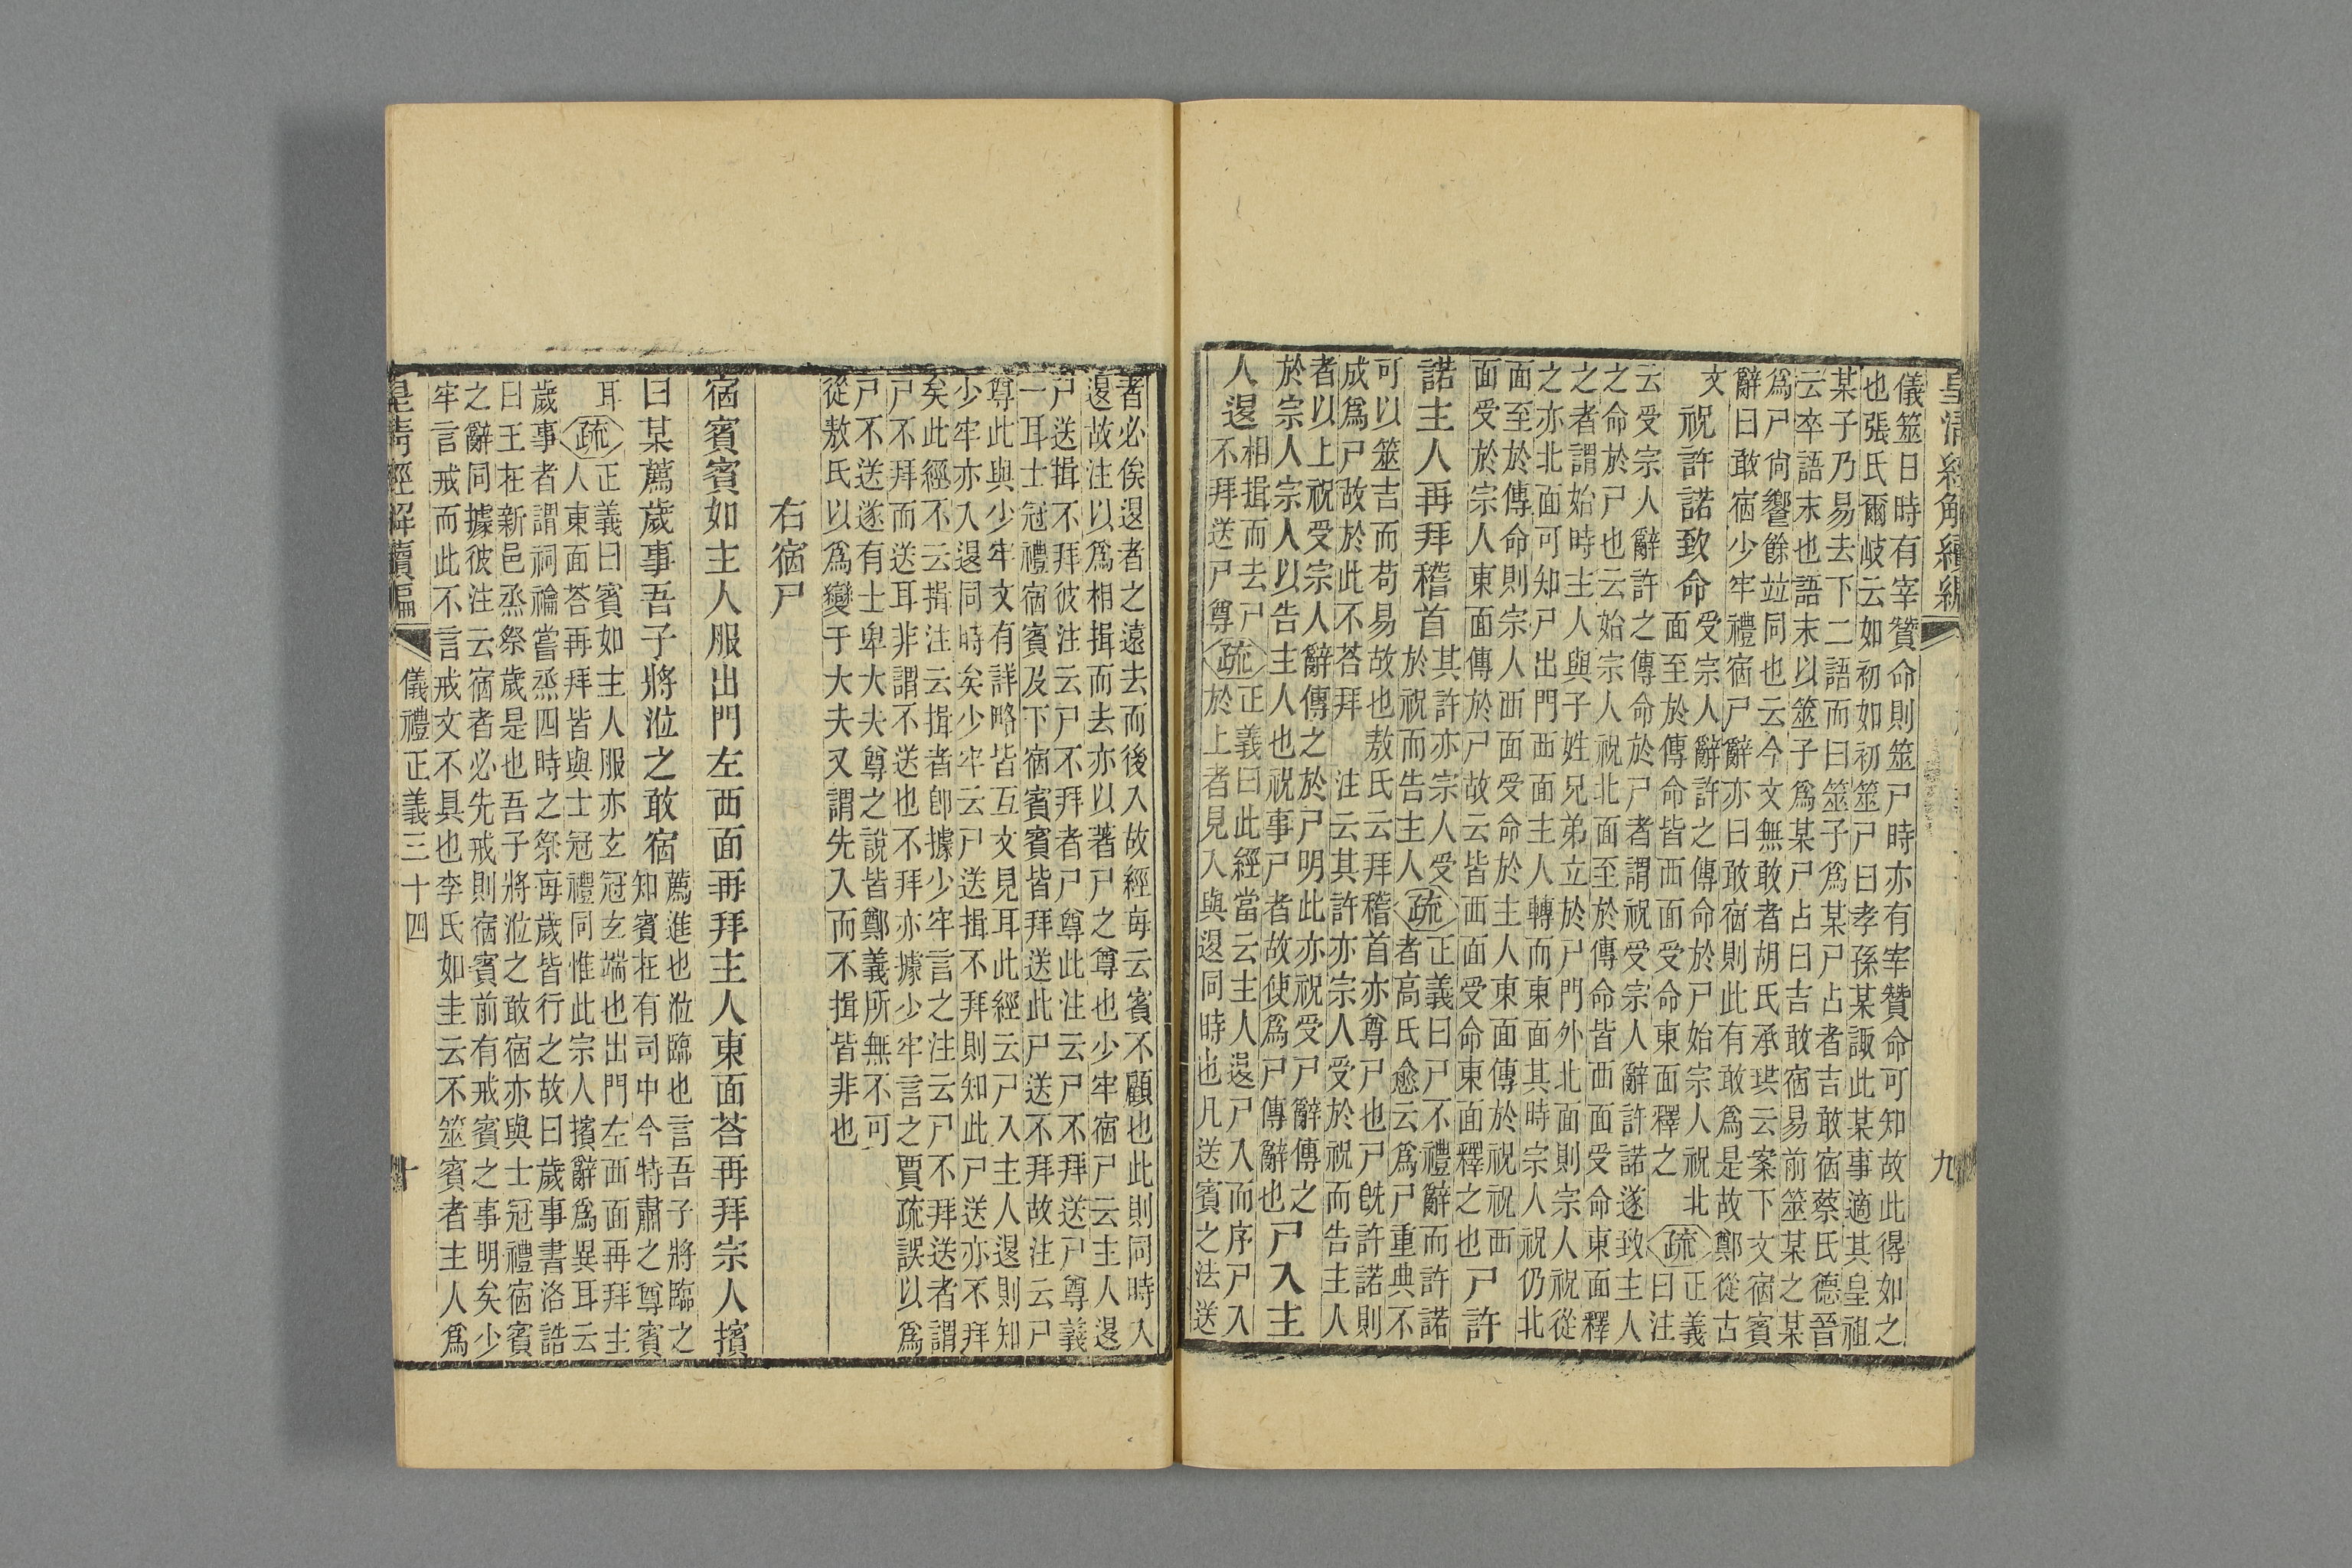 皇清經解續編
九
儀筮日時有宰贊命則筮尸時亦有宰贊命可知故此得如之
也張氏爾岐云如初如初筮尸曰孝孫某諏此某事適其皇祖
某子乃易去下二語而曰筮子爲某尸占者吉敢宿蔡氏德晉
云卒語末也語末以筮子爲某尸占曰吉敢宿易前筮某之某
爲尸尙饗餘竝同也云今文無敢者胡氏承珙云案下文宿賓
辭曰敢宿少牢禮宿尸辭亦曰敢宿則此有敢爲是故鄭從古
文
祝許諾致命
受宗人辭許之傳命於尸始宗人祝北
面至於傳命皆西面受命東面釋之
疏
正義
曰注
云受宗人辭許之傳命於尸者謂祝受宗人辭許諾遂致主人
之命於尸也云始宗人祝北面至於傳命皆西面受命東面釋
之者謂始時主人與子姓兄弟立於尸門外北面則宗人祝從
之亦北面可知尸出門西面主人轉而東面其時宗人祝仍北
面至於傳命則宗人西面受命於主人東面傳於祝祝西
面受於宗人東面傳於尸故云皆西面受命東面釋之也
尸許
諾主人再拜稽首
其許亦宗人受
於祝而告主人
疏
正義曰尸不禮辭而許諾
者高氏愈云爲尸重典不
可以筮吉而苟易故也敖氏云拜稽首亦尊尸也尸旣許諾則
成爲尸故於此不荅拜注云其許亦宗人受於祝而告主人
者以上祝受宗人辭傳之於尸明此亦祝受尸辭傳之
於宗人宗人以告主人也祝事尸者故使爲尸傳辭也
尸入主
人退
相揖而去尸
不拜送尸尊
疏
正義曰此經當云主人退尸入而序尸入
於上者見入與退同時也凡送賓之法送
者必俟退者之遠去而後入故經每云賓不顧也此則同時入
退故注以爲相揖而去亦以著尸之尊也少牢宿尸云主人退
尸送揖不拜彼注云尸不拜者尸尊此注云尸不拜送尸尊義
一耳士冠禮宿賓及下宿賓賓皆拜送此尸送不拜故注云尸
尊此與少牢文有詳略皆互文見耳此經云尸入主人退則知
少牢亦入退同時矣少牢云尸送揖不拜則知此尸送亦不拜
矣此經不云揖注云揖者卽據少牢言之注云尸不拜送者謂
尸不拜而送耳非謂不送也不拜亦據少牢言之賈疏誤以爲
尸不送遂有士卑大夫尊之說皆鄭義所無不可
從敖氏以爲變于大夫又謂先入而不揖皆非也
右宿尸
宿賓賓如主人服出門左西面再拜主人東面荅再拜宗人擯
曰某薦歲事吾子將涖之敢宿
薦進也涖臨也言吾子將臨之
知賓在有司中今特肅之尊賓
耳
疏
正義曰賓如主人服亦玄冠玄端也出門左西面再拜主
人東面荅再拜皆與士冠禮同惟此宗人擯辭爲異耳云
歲事者謂祠禴嘗烝四時之祭每歲皆行之故曰歲事書洛誥
曰王在新邑烝祭歲是也吾子將涖之敢宿亦與士冠禮宿賓
之辭同據彼注云宿者必先戒則宿賓前有戒賓之事明矣少
牢言戒而此不言戒文不具也李氏如圭云不筮賓者主人爲
皇清經解續編
儀禮正義三十四
十